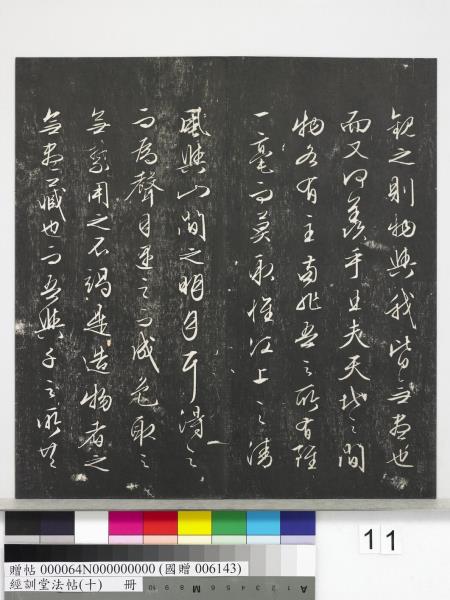 觀之則物與我皆無盡也
而又何羨乎且夫天地之間
物各有主苟非吾之所有雖
一毫而莫取惟江上之清
風與山間之明月耳得之
而為聲目遇之而成色取之
無禁用之不竭是造物者之
無盡藏也而吾與子之所共
11
贈帖 000064N000000000 (國贈 006143)
經訓堂法帖(十) 冊